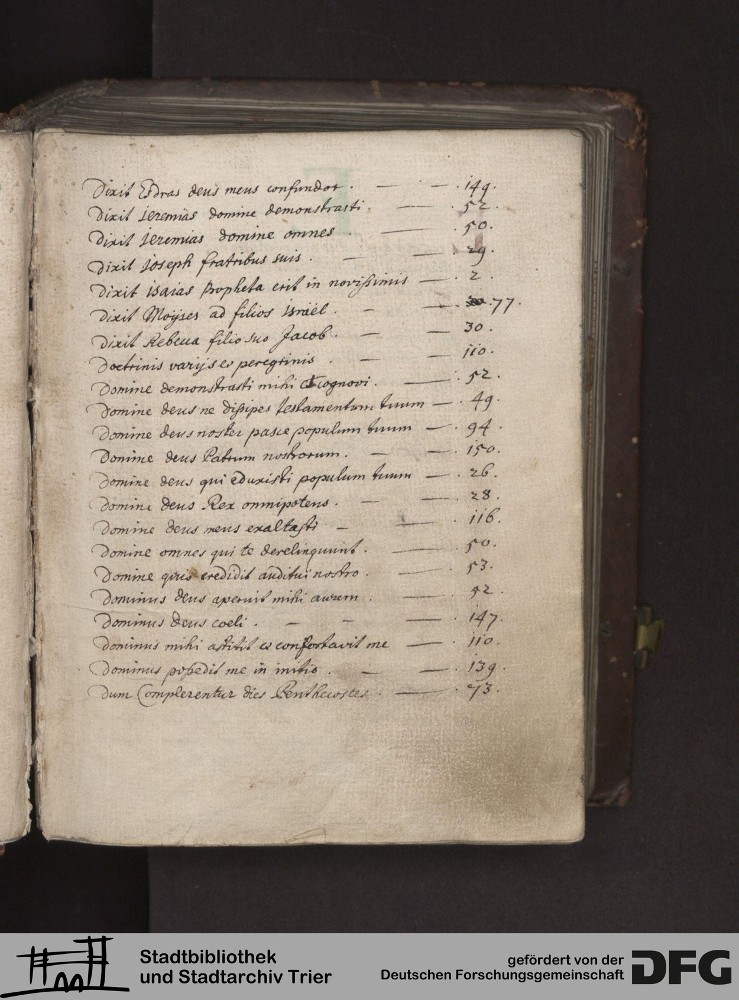 Dixit Esdras deus meus confundor. — · — · 149.
Dixit Jeremias domine demonstrasti — · 52.
Dixit Jeremias domine omnes — — · 50.
Dixit Joseph fratribus suis. — — · 29
Dixit isaias propheta erit in novissimis — · 2.
Dixit Moyses ad filios israël. — — · 77.
Dixit Rebecca filio suo Jacob. — — 30.
Doctrinis varijs et peregrinis. — — 110.
Domine demonstrasti mihi et cognovi. — · 52.
Domine deus ne dissipes testamentum tuum — · 49.
Domine deus noster pasce populum tuum — · 94.
Domine deus Patrum nostrorum. — — · 150.
Domine deus qui eduxisti populum tuum — · 26.
Domine deus Rex omnipotens. — — · 28.
Domine deus meus exaltasti — · 116.
Domine omnes qui te derelinquunt. — · 50.
Domine quis credidit auditui nostro. — · 53.
Dominus deus aperuit mihi aurem. — · 52.
Dominus deus coeli. — — — · 147.
Dominus mihi astitit et confortavit me — · 110.
Dominus possedit me in initio. — — · 139.
Dum Complerentur dies Penthecostes. — · 73.
Stadtbibliothek
und Stadtarchiv Trier
gefördert von der
Deutschen Forschungsgemeinschaft
DFG